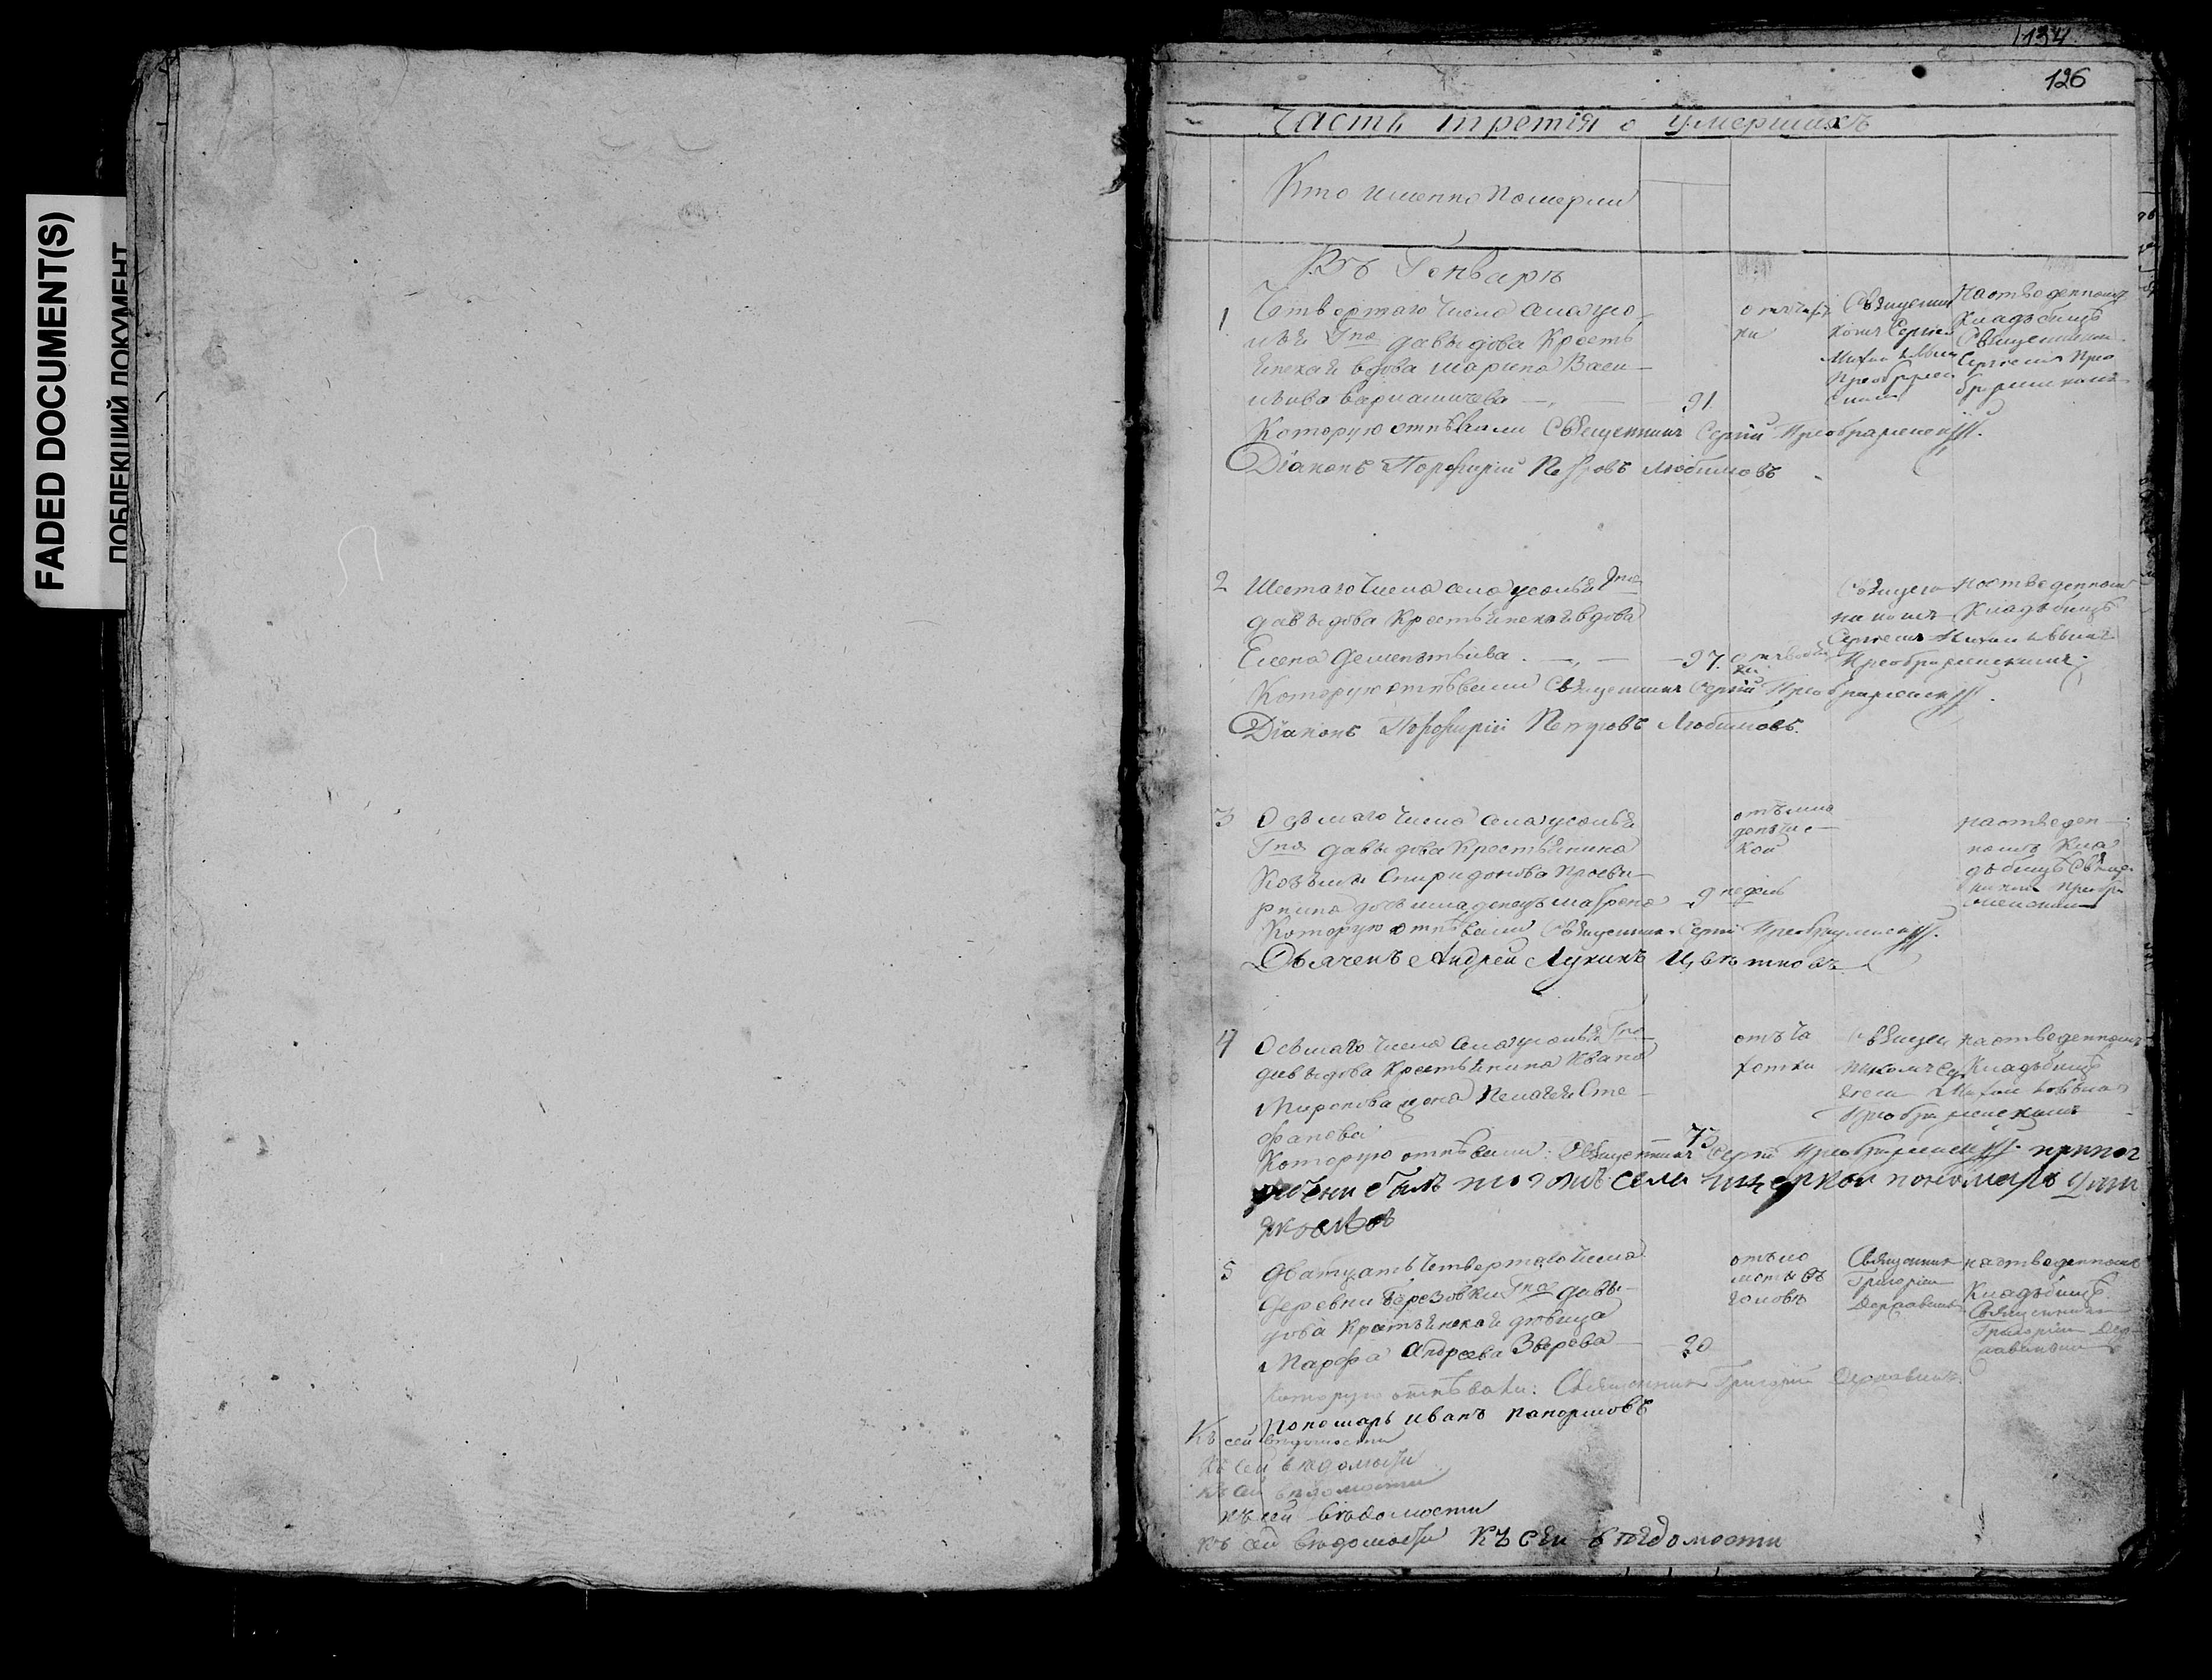 FADED DOCUMENT(S)
ПОБЛЕКШИЙ ДОКУМЕНТ
134
126
Часть третія о умершихъ
Кто именно померли
Въ Генварѣ
1
Четвертаго числа села усо-
льи Гна давыдова Кресть
янская вдова марина Васи-
льива
91.
отъ чахот
ки
Священни
комъ Сергіем
Михаиловым
Преображен
ским
На отведенномъ
Кладбищѣ
Священником
Сергеемъ Прео
браженскимъ
Которую отпѣвали Священникъ Сергій Преображенскій.
Діаконъ Порфирій Петровъ Любимовъ
2
Шестаго числа села усолья Гна
давыдова Крестьянская вдова
Елена дементьива
97.
Священ
никомъ
Сергеемъ Михаиловымъ
Преображенскимъ
На отведенномъ
Кладбищѣ
Которую отпѣвали Священникъ Сергій Преображенскій.
Діаконъ Порфирій Петровъ Любимовъ.
3
Осьмаго числа села усолья
Гна давыдова Крестьянина
Козьмы Спиридонова
дочь младенецъ мавренa
9 недель
отъ мла
денчес-
кой
На отведен-
номъ Кла
дбищѣ Свяще
ником Преобра
женским
Которую отпѣвали Священникъ Сергій Преображенскій.
Дьячекъ Андрей Лукинъ Цвѣтковъ
4
Осьмаго числа села усолья Гна
давыдова Крестьянина Ивана
Миронова жена Пелагея Сте-
фанова
75
отъ ча
хотки
Священ
никомъ Сер
геем Михаиловымъ
Преображенскимъ
На отведенномъ
Кладбищѣ
Которую отпѣвали: Священникъ Сергій Преображенскій. при пог
ребении былъ тогожъ села церкви пономарь
5
Дватцать четвертаго числа
деревни Березовки Гна давы-
дова Крестьянская дѣвица
Марфа Андреева Зверева
20
отъ ло
моты въ
головѣ
Священник
Григоріем
Державиным
На отведенномъ
Кладбищѣ
Священником
Григоріем Дер
жавиным
Которую отпѣвали: Священникъ Григорій Державинъ.
Пономарь Иванъ Папоримовъ
Къ сей вѣдомости
Къ сей вѣдомости
Къ сей вѣдомости
Къ сей вѣдомости
Къ сей вѣдомости Къ сей вѣдомости